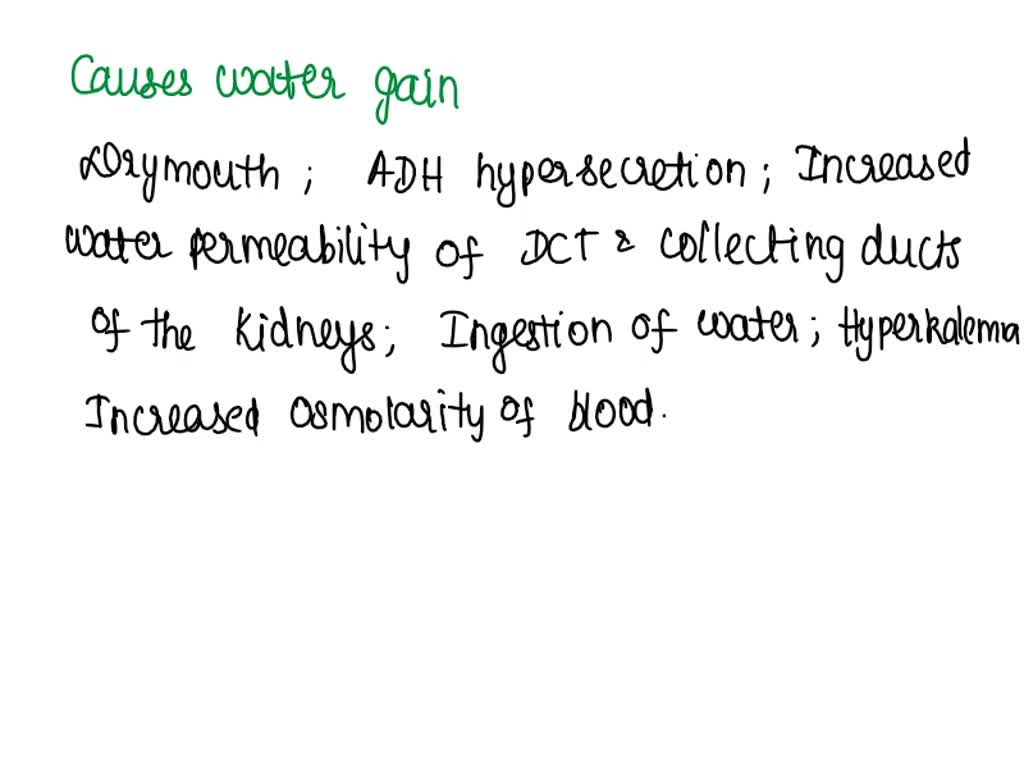 Causes water gain
Drymouth ; ADH hypersecretion ; Increased
water permeability of DCT & collecting ducts
of the kidneys ; Ingestion of water ; Hyperkalema
Increased osmolarity of blood.